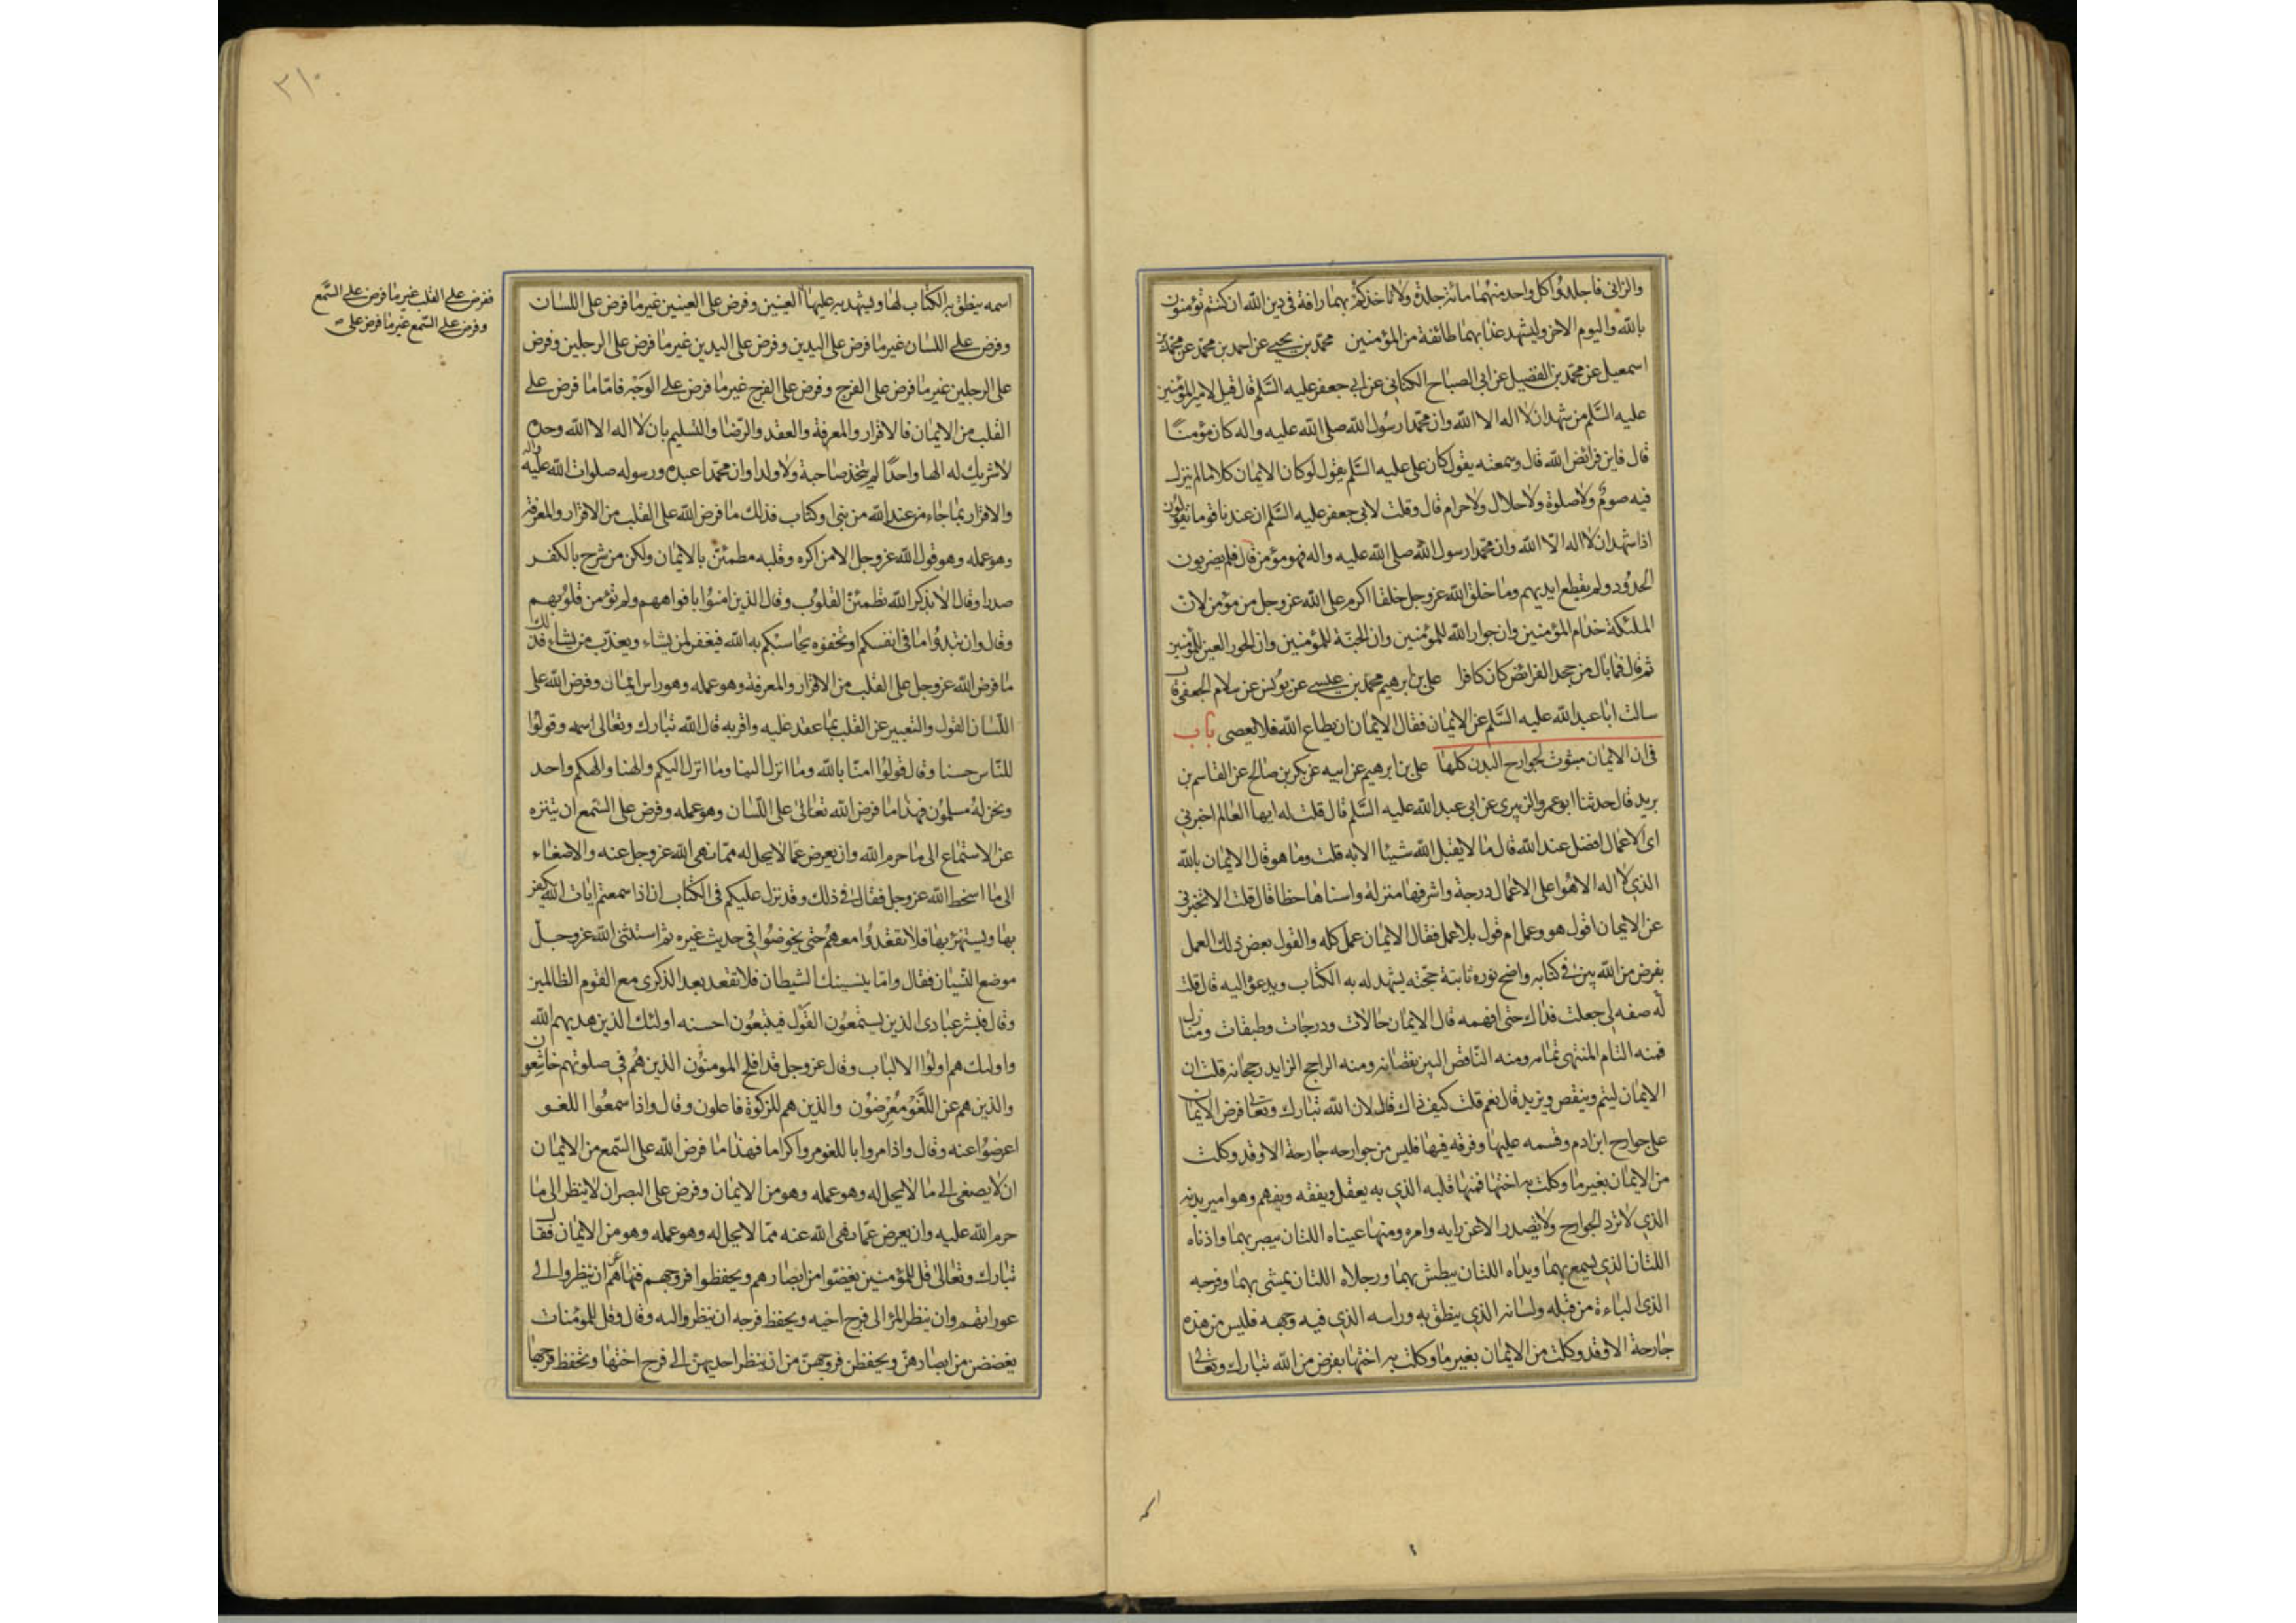 والزانى فاجلدوا كل واحد منهما مائة جلدة ولا تاخذكم بهما رافة فى دين الله ان كنتم تؤمنون
بالله واليوم الاخر وليشهد عذابهما طائفة من المؤمنين محمد بن يحيى عن احمد بن محمد عن محمد بن
اسمعيل عن محمد بن الفضيل عن ابى الصباح الكنانى عن ابى جعفر عليه السلم قال قيل لامير المؤمنين
عليه السلم من شهد ان لا اله الا الله وان محمدا رسول الله صلى الله عليه واله كان مؤمنا
قال فاين فرائض الله قال وسمعته يقول كان على عليه السلم يقول لو كان الايمان كلاما لم ينزل
فيه صوم ولا صلوة ولا حلال ولا حرام قال وقلت لابى جعفر عليه السلم ان عندنا قوما يقولون
اذا شهد ان لا اله الا الله وان محمدا رسول الله صلى الله عليه واله فهو مؤمن قال فلم يضربون
الحدود ولم يقطع ايديهم وما خلق الله عز وجل خلقا اكرم على الله عز وجل من مؤمن لان
الملئكة خدام المؤمنين وان جوار الله للمؤمنين وان الجنة للمؤمنين وان الحور العين للمؤمنين
ثم قال فما بال من جحد الفرائض كان كافرا على بن ابرهيم محمد بن عيسى عن يونس عن سلام الجعفى قال
سالت ابا عبد الله عليه السلم عن الايمان فقال الايمان ان يطاع الله فلا يعصى باب
فى ان الايمان مبثوث لجوارح البدن كلها على بن ابرهيم عن ابيه عن بكر بن صالح عن القاسم بن
بريد قال حدثنا ابو عمرو الزبيرى عن ابى عبد الله عليه السلم قال قلت له ايها العالم اخبرنى
اى الاعمال افضل عند الله قال ما لا يقبل الله شيئا الا به قلت وما هو قال الايمان بالله
الذى لا اله الا هو اعلى الاعمال درجة واشرفها منزلة واسناها حظا قال قلت الا تخبرنى
عن الايمان اقول هو وعمل ام قول بلا عمل فقال الايمان عمل كله والقول بعض ذلك العمل
بفرض من الله بين فى كتابه واضح نوره ثابتة حجته يشهد له به الكتاب ويدعو اليه قال قلت
له صفه لى جعلت فداك حتى افهمه قال الايمان حالات ودرجات وطبقات ومنازل
فمنه التام المنتهى تمامه ومنه الناقص البين نقصانه ومنه الراجح الزايد رجحانه قلت ان
الايمان ليتم وينقص ويزيد قال نعم قلت كيف ذاك قال لان الله تبارك وتعا فرض الايمان
على جوارح ابن ادم وقسمه عليها وفرقه فيها فليس من جوارحه جارحة الا وقد وكلت
من الايمان بغير ما وكلت به اختها فمنها قلبه الذى به يعقل ويفقه ويفهم وهو امير بدنه
الذى لا ترد الجوارح ولا يصدر الا عن رايه وامره ومنها عيناه اللتان يبصر بهما واذناه
اللتان الذى يسمع بهما ويداه اللتان يبطش بهما ورجلاه اللتان يمشى بهما وفرجه
الذى الباءة من قبله ولسانه الذى ينطق به وراسه الذى فيه وجهه فليس من هذه
جارحة الا وقد وكلت من الايمان بغير ما وكلت به اختها بفرض من الله تبارك وتعالى
٣١٠
اسمه ينطق به الكتاب لها ويشهد به عليها العينين وفرض على العينين غير ما فرض على اللسان
وفرض على اللسان غير ما فرض على اليدين وفرض على اليدين غير ما فرض على الرجلين وفرض
على الرجلين غير ما فرض على الفرج وفرض على الفرج غير ما فرض على الوجه فاما ما فرض على
القلب من الايمان فالاقرار والمعرفة والعقد والرضا والتسليم بان لا اله الا الله وحده
لا شريك له الها واحدا لم يتخذ صاحبة ولا ولدا وان محمدا عبده ورسوله صلوات الله عليه واله
والاقرار بما جاء من عند الله من نبى او كتاب فذلك ما فرض الله على القلب من الاقرار والمعرفة
وهو عمله وهو قول الله عز وجل الا من اكره وقلبه مطمئن بالايمان ولكن من شرح بالكفر
صدرا وقال الا بذكر الله تطمئن القلوب وقال الذين امنوا بافواههم ولم تؤمن قلوبهم
وقال وان تبدوا ما فى انفسكم او تخفوه يحاسبكم به الله فيغفر لمن يشاء ويعذب من يشاء فذلك
ما فرض الله عز وجل على القلب من الاقرار والمعرفة وهو عمله وهو راس الايمان وفرض الله على
اللسان القول والتعبير عن القلب بما عقد عليه واقر به قال الله تبارك وتعالى اسمه وقولوا
للناس حسنا وقال قولوا امنا بالله وما انزل الينا وما انزل اليكم والهنا والهكم واحد
ونحن له مسلمون فهذا ما فرض الله تعالى على اللسان وهو عمله وفرض على السمع ان يتنزه
عن الاستماع الى ما حرم الله وان يعرض عما لا يحل له مما نهى الله عز وجل عنه والاصغاء
الى ما اسخط الله عز وجل فقال فى ذلك وقد نزل عليكم فى الكتاب ان اذا سمعتم ايات الله يكفر
بها ويستهزء بها فلا تقعدوا معهم حتى يخوضوا فى حديث غيره ثم استثنى الله عز وجل
موضع النسيان فقال واما ينسينك الشيطان فلا تقعد بعد الذكرى مع القوم الظالمين
وقال فبشر عبادى الذين يستمعون القول فيتبعون احسنه اولئك الذين هديهم الله
واولئك هم اولوا الالباب وقال عز وجل قد افلح المومنون الذين هم فى صلوتهم خاشعون
والذين هم عن اللغو معرضون والذين هم للزكوة فاعلون وقال واذا سمعوا اللغو
اعرضوا عنه وقال واذا مروا باللغو مروا كراما فهذا ما فرض الله على السمع من الايمان
ان لا يصغى الى ما لا يحل له وهو عمله وهو من الايمان وفرض على البصر ان لا ينظر الى ما
حرم الله عليه وان يعرض عما نهى الله عنه مما لا يحل له وهو عمله وهو من الايمان فقال
تبارك وتعالى قل للمؤمنين يغضوا من ابصارهم ويحفظوا فروجهم فنهاهم ان ينظروا الى
عوراتهم وان ينظر المرء الى فرج اخيه ويحفظ فرجه ان ينظر واليه وقال وقل للمؤمنات
يغضضن من ابصارهن ويحفظن فروجهن من ان ينظر احديهن الى فرج اختها وتحفظ فرجها
ففرض على القلب غير ما فرض على السمع
وفرض على السمع غير ما فرض على